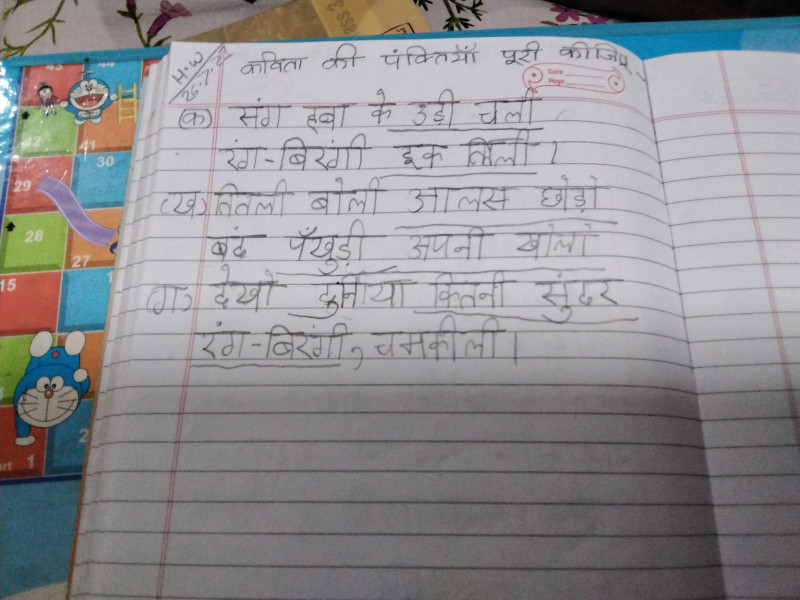 H.W
कविता की पंक्तियाँ पूरी कीजिए
Date
Page
(क) संग हवा के उड़ी चली
रंग-बिरंगी इक तिली।
(ख) तितली बोली आलस छोड़ो
बंद पँखुड़ी अपनी खोलो
(ग) देखो दुनीया कितनी सुंदर
रंग-बिरंगी, चमकीली।
42
41
30
29
28
27
15
1
2